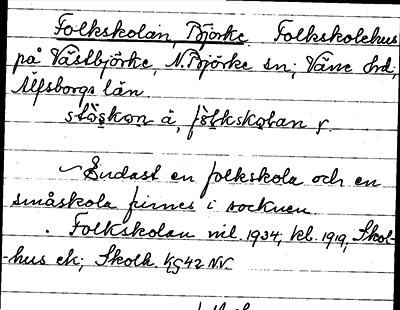 Folkskolan, Björke Folkskolehus
på Västbjörke, N. Björke sn; Väne hd;
Älfsborgs län
skōskon ä, fōlkskolan y.
Endast en folkskola och en
småskola finnes i socknen.
Folkskolan mil. 1934; kb. 1919, Skol-
-hus ek; Skolh. KG42NV.